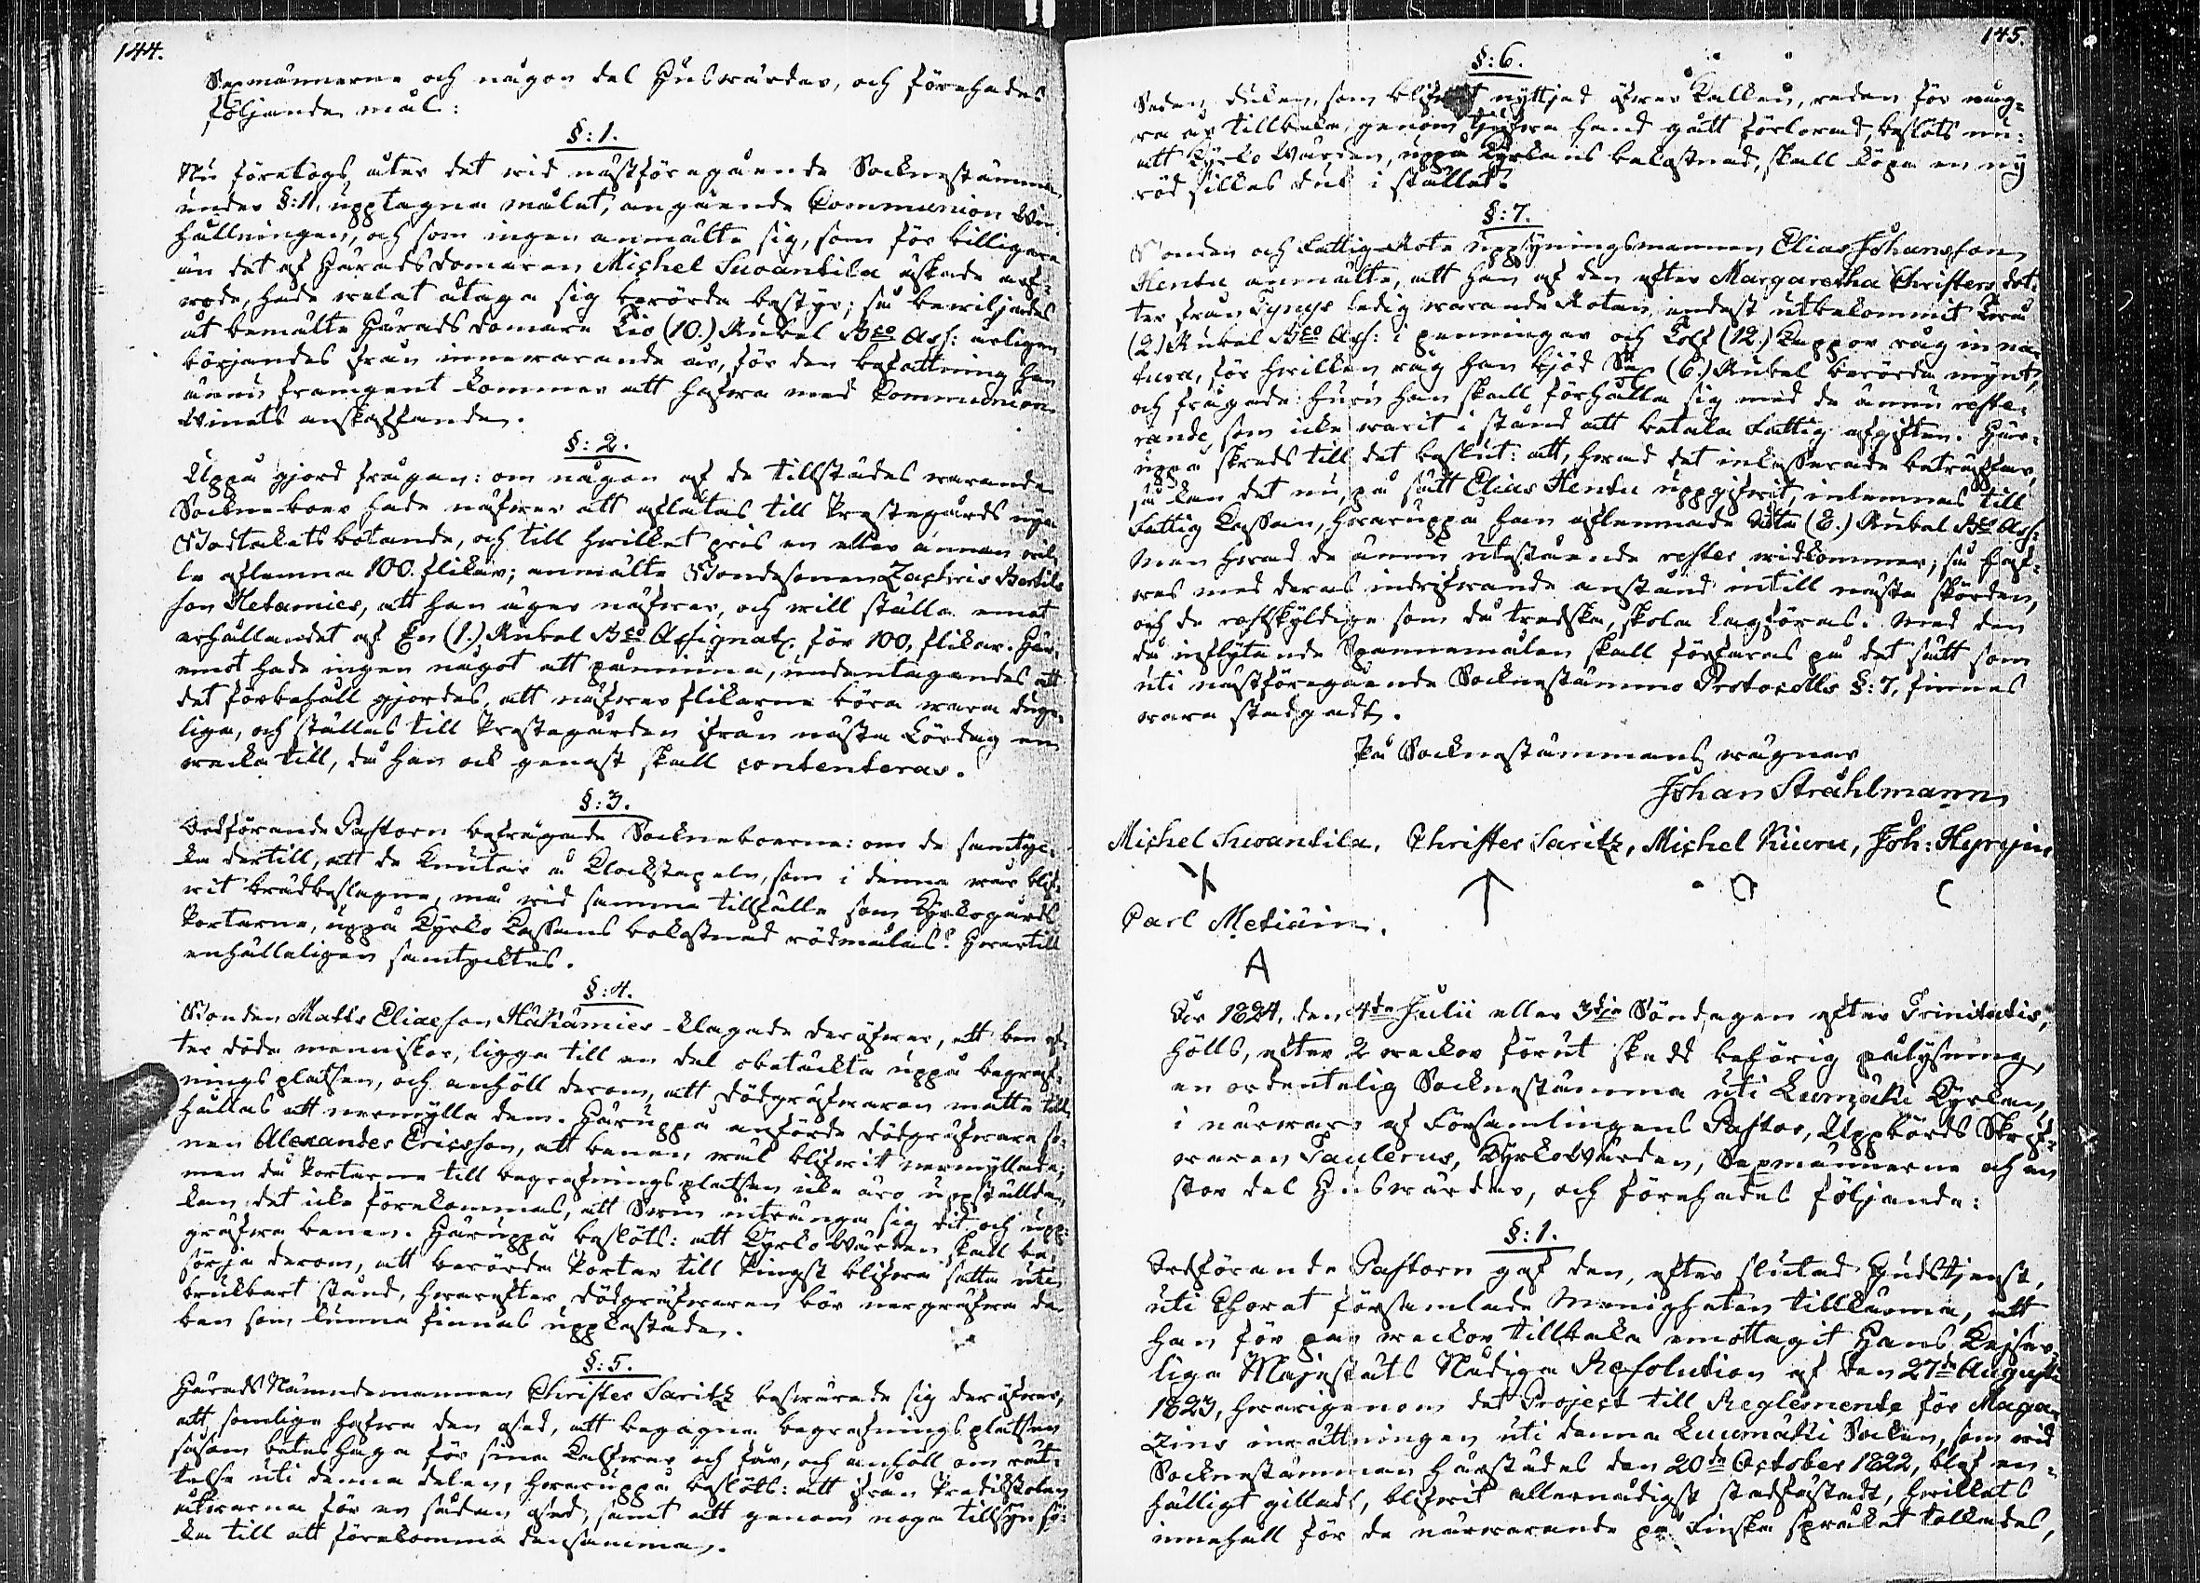 144.
Sexmännerne och någon del Husvärdar, och förehades
följande mål:
§: 1.
Nu företogs åter det vid nästföregående Sockne stämma,
under §: 11. upptagna målet, angående Communion Win-
hållningen, och som ingen anmälte sig, som för billigare
än det af Häradsdomaren Michel Suoantila äskade arf-
vode, hade velat åtaga sig berörde bestyr; så beviljades
åt bemälte Häradsdomare Tio (10.) Rubel Bco Ass: årligen
börjandes från innevarande år, för den befattning han
ännu framgent kommer att hafva med Communion
Winets anskaffande.
§: 2.
Uppå gjord frågan: om någon af de tillstädes varande
Sockneboer hade näfver att aflåtas till Prestegårds nya
Stallets betande, och till hvilket pris en eller annan vil-
le aflemna 100. flikar; anmälte Bondesonen Zachris Bertils
son Hetamies, att han äger näfver, och vill ställa emot
erhållandet af En (1.) Rubel Bco Assignat: för 100, flikar. Här-
emot hade ingen något att påminna, undantagandes att
det förbehåll gjordes, att näfver flikarne böra vara duge-
liga, och ställas till Prestegården ifrån nästa Lördag en
vecka till, då han ock genast skall contenteras.
§: 3.
Ordförande Pastorn befrågade Socknebоerne: om de samtyc-
ka dertill, att de knutar å Klockstapeln, som i denna vår blif-
vit brädbeslagne, må vid samma tillfälle som Kyrkogårds
Portarne, uppå Kyrko Cassans bekostnad rödmålas? Hvartill
enhälleligen samtycktes.
§: 4.
Bonden Matts Eliasson Häkämies klagade deröfver, att ben ef-
ter döda menniskor, ligga till en del obetäckta uppå begraf-
ningsplatsen, och anhöll derom, att dödgräfvaren måtte till-
hållas att nermylla dem. Häruppå anförde dödgräfvare so-
nen Alexander Ericsson, att benen väl blifvit nermyllade;
men då Portarne till begrafningsplatsen icke äro uppställde,
kan det icke förekommas, att Svin intränga sig dit och upp-
gräfva benen. Häruppå beslöts: att Kyrko Wärden skall be-
sörja derom, att berörde Portar till Pingst blifva satta uti
brukbart stånd, hvarefter dödgräfvaren bör nergräfva de
ben som kunna finnas uppkastade.
§: 5.
Härads Nämndemannen Christer Saritz besvärade sig deröfver,
att somlige hafva den osed, att begagna begrafningsplatsen
såsom beteshaga för sina Kalfvar och får, och anhöll om rät-
telse uti denna delen, hvaruppå beslöts: att ifrån Predikstolen
åtvarna för en sådan osed, samt att genom noga tillsyn sö-
ka till att förekomma densamma.
145.
§: 6.
Sedan duken, som blifvit nyttjad öfver Kalken, redan för någ-
ra år tillbaka, genom tjufva hand gått förlorad, beslöts nu:
att Kyrko Wärden, uppå Kyrkans bekostnad, skall köpa en ny
röd silkes duk i stället.
§: 7.
Bonden och Fattig-Rote uppsyningsmannen Elias Johansson
Hentu anmälte, att han af den efter Margaretha Christersdot-
ter från ledig varande Rotan, endast utbekommit Två
(2.) Rubel Bco Ass: i penningar och Tolf (12.) Kappor råg in na-
tura, för hvilken råg han bjöd Sex (6.) Rubel berörde mynt,
och frågade: huru han skall förhålla sig med de ännu reste-
rande, som icke varit i stånd att betala Fattig afgiften. Här-
uppå skreds till det beslut: att, hvad det inkasserade beträffar,
så kan det nu, på sätt Elias Hentu uppgifvit, inlemnas till
Fattig Cassan, hvaruppå han aflemnade Åtta (8.) Rubel Bco Ass:
Men hvad de ännu utestående rester vidkommer, så haf-
ves med deras indrifvande anstånd intill nästa skörden,
och de restskyldige som då tredska, skola lagföras. Med den
då inflytande Spannemålen skall förfaras på det sätt som
uti nästföregående Sockne stämmo Protocolls §: 7. finnes
vara stadgadt.
På Sockne stämmans vägnar
Johan Stråhlmann
Michel Suoantila, Christer Saritz, Michel Kiuru, Joh: Hyryin
Carl Metiäin.
A
År 1824, den 4de Julii eller 3dje Söndagen efter Trinitatis,
hölls, efter 2 veckor förut skedd behörig pålysning,
en ordentelig Sockne stämma uti Luumäki Kyrkan,
i närvaro af Församlingens Pastor, Uppbörds Skrif-
varen Faulerus, Kyrko Wärden, Sexmännerne och en
stor del Husvärdar, och förehades följande:
§: 1.
Ordförande Pastorn gaf den, efter slutad Gudstjenst,
uti Choret församlade Menigheten tillkänna, att
han för par veckor tillbaka emottagit Hans Kejser-
liga Majestäts Nådiga Resolution af den 27de Augusti
1823, hvarigenom det Project till Reglemente för Maga-
zins inrättningen uti denna Luumäki Socken, som vid
Sockne stämman härstädes den 20de October 1822, blef en-
hälligt gilladt, blifvit allernådigst stadfästadt, hvilkets
innehåll för de närvarande på Finska språket tolkades,